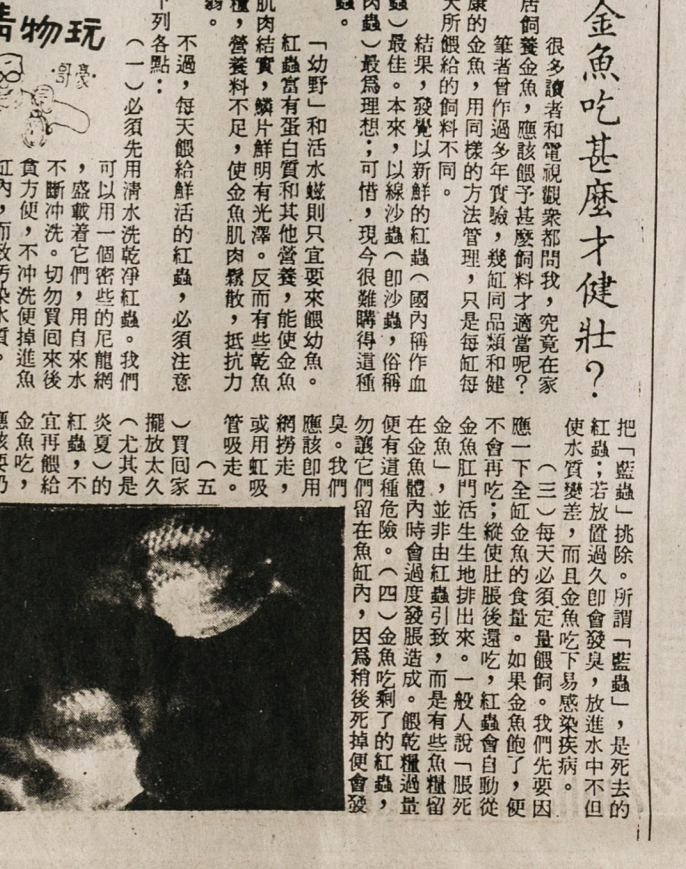 金魚吃甚麼才健壯?
很多讀者和電視觀衆都問我,究竟在家
居飼養金魚,應該餵予甚麼飼料才適當呢?
筆者曾作過多年實驗,幾缸同品類和健
康的金魚,用同樣的方法管理,只是每缸每
天所餵給的飼料不同。
結果,發覺以新鮮的紅蟲(國內稱作血
蟲)最佳。本來,以線沙蟲(卽沙蟲,俗稱
肉蟲)最爲理想;可惜,現今很難購得這種
蟲。
「幼野」和活水蟣則只宜要來餵幼魚。
紅蟲富有蛋白質和其他營養,能使金魚
肌肉結實,鱗片鮮明有光澤。反而有些乾魚
糧,營養料不足,使金魚肌肉鬆散,抵抗力
弱。
不過,每天餵給鮮活的紅蟲,必須注意
下列各點:
(一)必須先用清水洗乾凈紅蟲。我們
可以用一個密些的尼龍網
,盛載着它們,用自來水
不斷冲洗。切勿買囘來後
貪方便,不冲洗便掉進魚
缸內,而致污染水質。
玩物
·豪哥·
把「藍蟲」挑除。所謂「藍蟲」,是死去的
紅蟲;若放置過久卽會發臭,放進水中不但
使水質變差,而且金魚吃下易感染疾病。
(三)每天必須定量餵飼。我們先要因
應一下全缸金魚的食量。如果金魚飽了,便
不會再吃;縱使肚脹後還吃,紅蟲會自動從
金魚肛門活生生地排出來。一般人說「脹死
金魚」,並非由紅蟲引致,而是有些魚糧留
在金魚體內時會過度發脹造成。餵乾糧過量
便有這種危險。(四)金魚吃剩了的紅蟲,
勿讓它們留在魚缸內,因爲稍後死掉便會發
臭。我們
應該卽用
網撈走,
或用虹吸
管吸走。
(五
)買囘家
擺放太久
(尤其是
炎夏)的
紅蟲,不
宜再餵給
金魚吃,
應該要扔